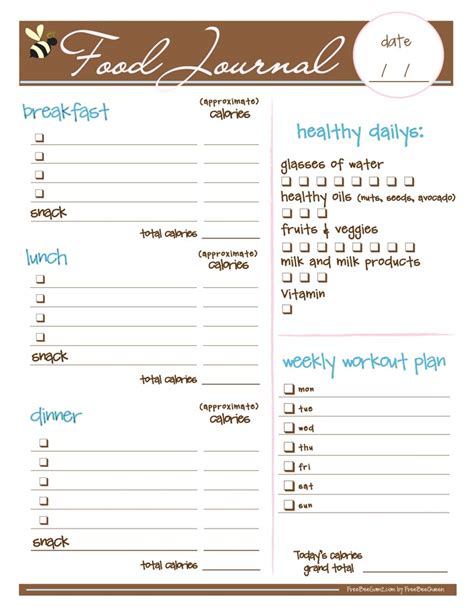 Food Journal
date
/ /
breakfast
(approximate)
calories
snack
total calories
lunch
(approximate)
calories
snack
total calories
dinner
(approximate)
calories
total calories
healthy dailys:
glasses of water
healthy oils (nuts, seeds, avocado)
fruits & veggies
milk and milk products
Vitamin
weekly workout plan
mon
tue
wed
thu
fri
sat
sun
Today's calories
grand total
FreeBeeGumz.com by FreeBeeQueen